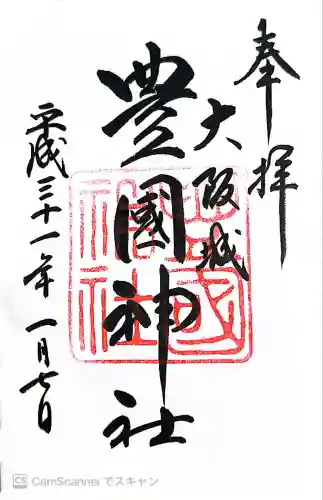 奉拝
大阪城
豊國神社
平成三十一年一月七日
豊國神社
CS CamScanner でスキャン